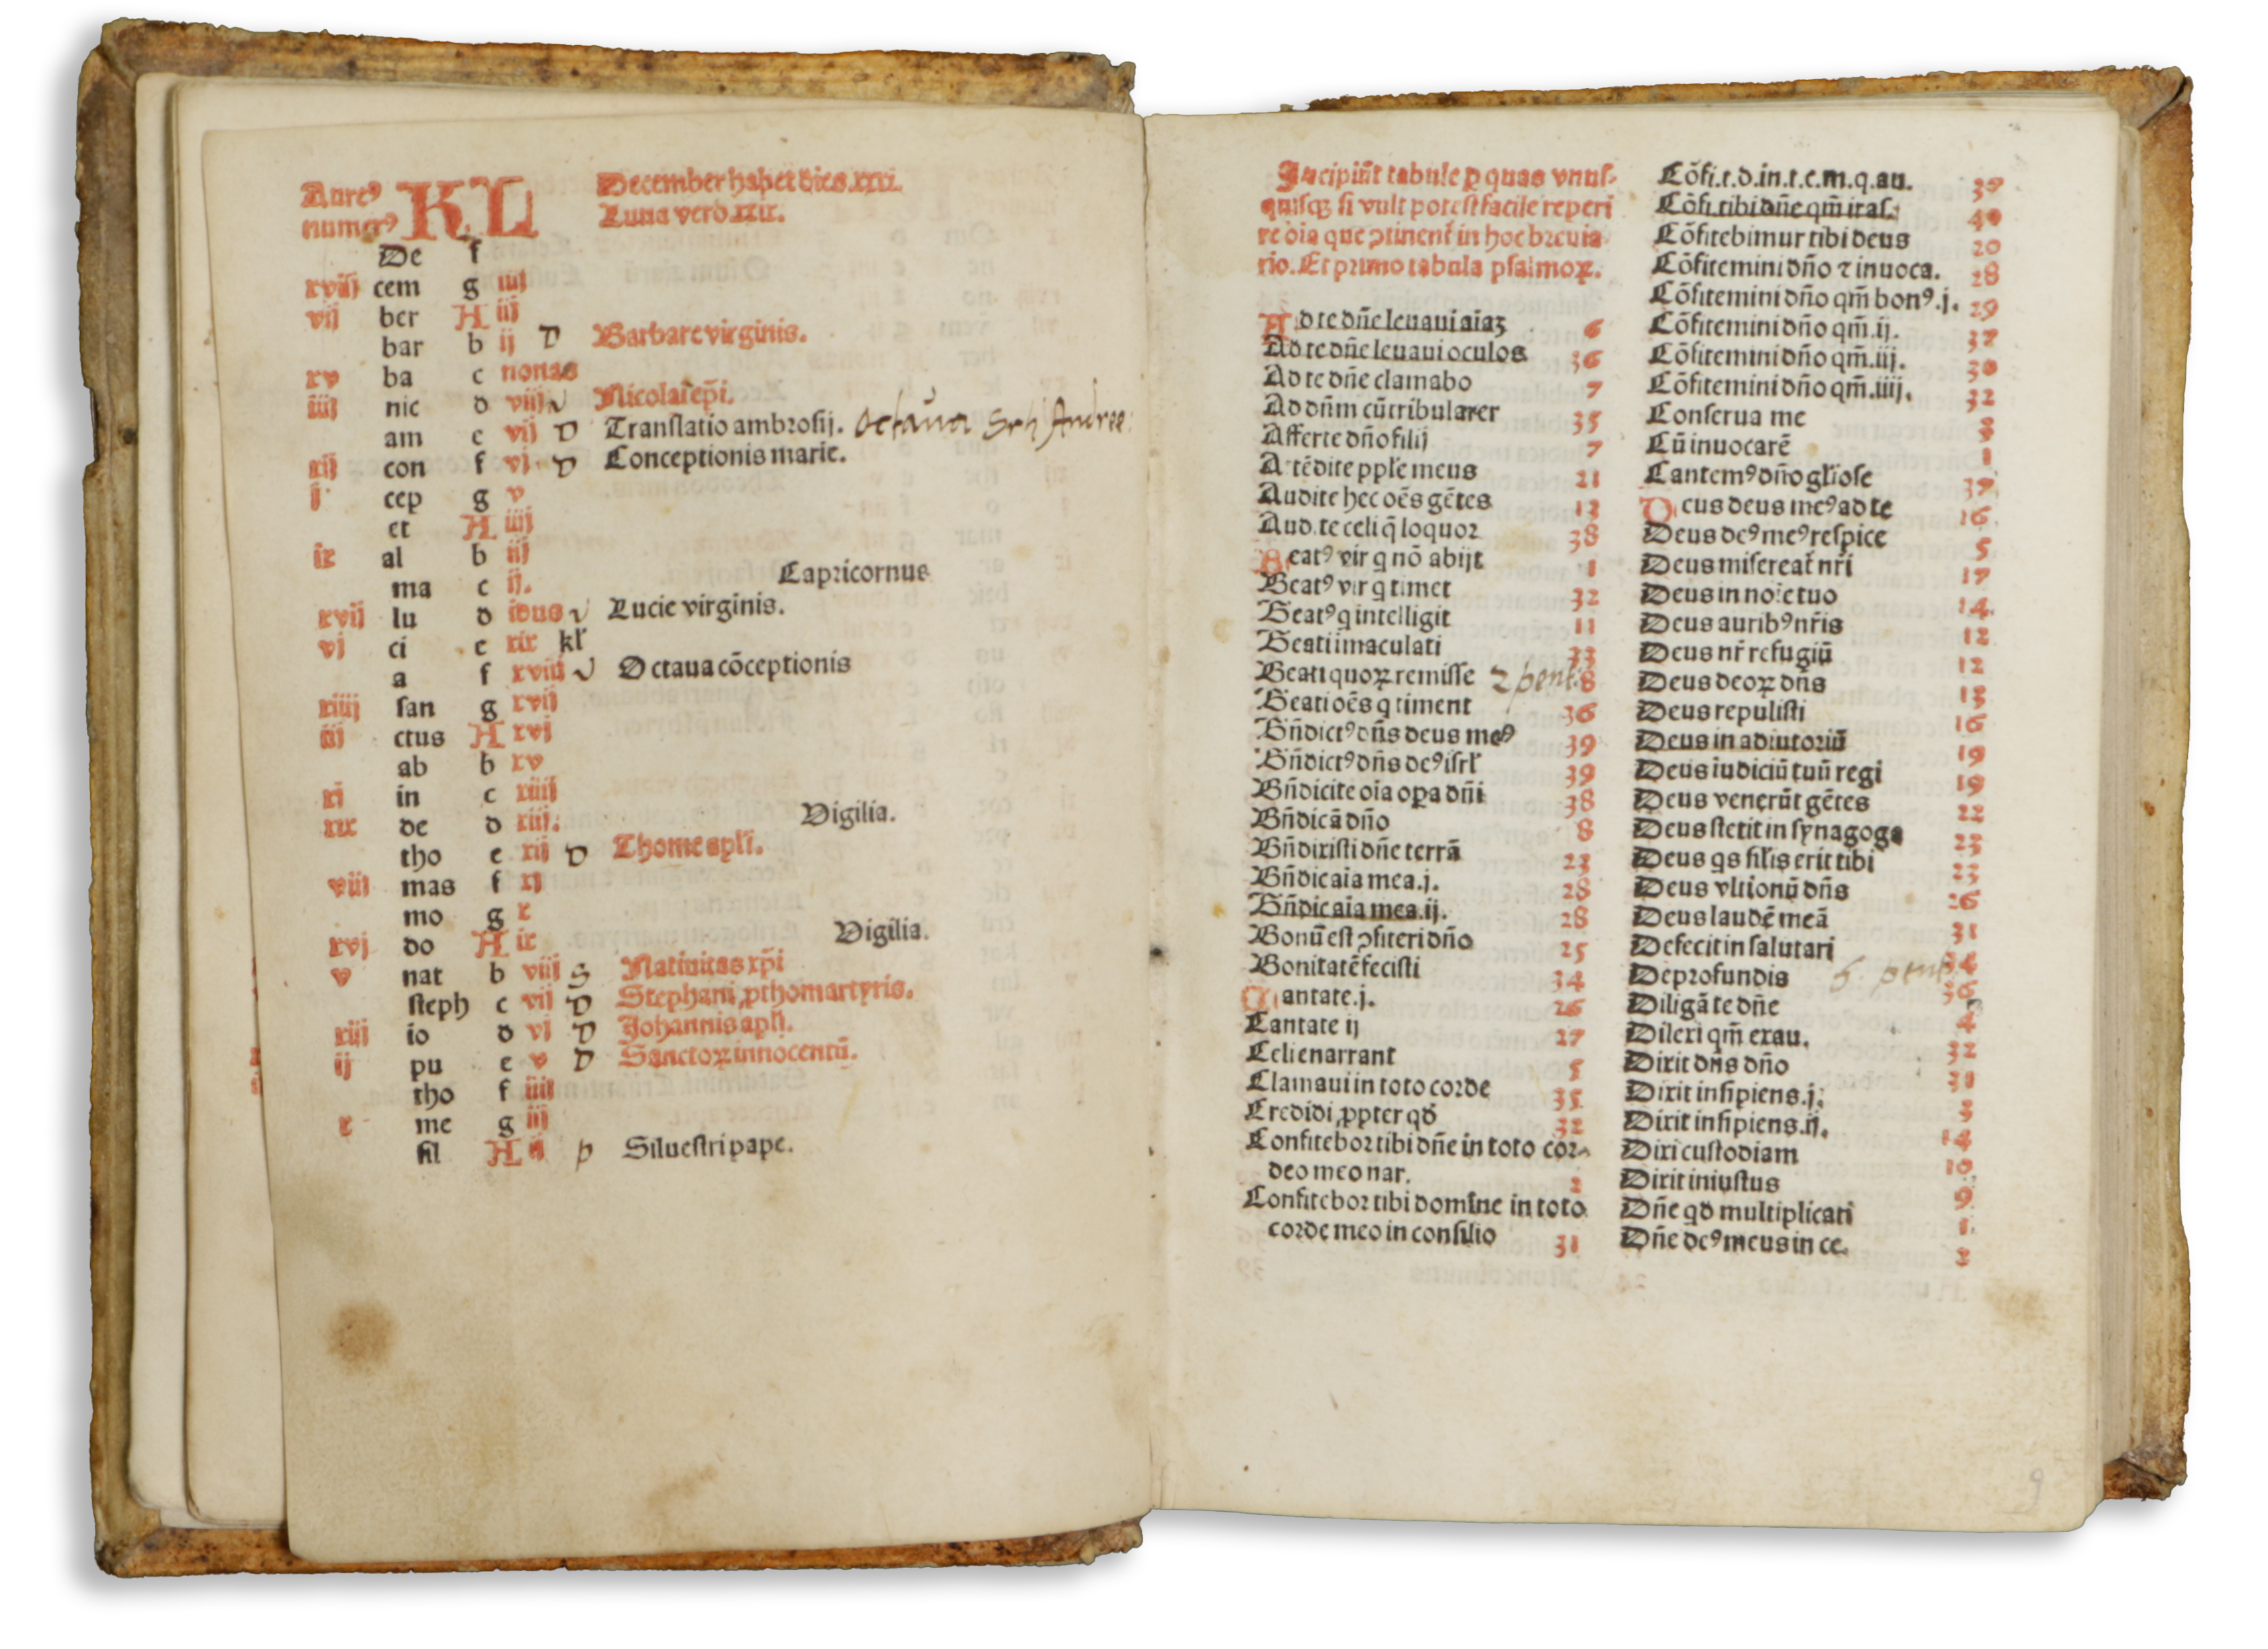 Aureꝰ KL December habet dies.xxxi.
numerꝰ Luna vero.xxix.
De f
xviij cem g iiij
vij ber A iij
bar b ij D Barbare virginis.
xv ba c nonas
iiij nic d viij v Nicolai ep̄i.
am e vij D Translatio ambrosij. Octava Sct̄i Andree
xij con f vj D Conceptionis marie.
j cep g v
et A iiij
ix al b iij
ma c ij. Capricornus
xvij lu d idus v Lucie virginis.
vj ci e xix kl̄
a f xviij v Octaua cōceptionis
xiiij san g xvij
iij ctus A xvj
ab b xv
xi in c xiiij
xix de d xiij. Vigilia.
tho e xij D Thome apl̄i.
viij mas f xj
mo g x
xvj do A ix Vigilia.
v nat b viij S Natiuitas xp̄i
steph c vij D Stephani ꝓthomartyris.
xiij io d vj D Johannis apl̄i.
ij pu e v D Sanctoꝝ innocentū.
tho f iiij
x me g iij
sil A ij p Siluestri pape.
Incipiūt tabule ꝑ quas vnus-
quisqꝫ si vult potest facile reperi
re oīa que ꝯtinent̄ in hoc breuia
rio. Et primo tabula psalmoꝝ.
Ad te dn̄e leuaui aīaꝫ 6
Ad te dn̄e leuaui oculos 36
Ad te dn̄e clamabo 7
Ad dn̄m cū tribularer 35
Afferte dn̄o filij 7
Attēdite pple meus 21
Audite hec oēs gētes 12
Audite celi q̄ loquor 38
Beatꝰ vir q nō abijt 1
Beatꝰ vir q timet 32
Beatꝰ q intelligit 11
Beati imaculati 33
Beati quoꝝ remisse 2 pent. 8
Beati oēs q timent 36
Bn̄dictꝰ dn̄s deus meꝰ 39
Bn̄dictꝰ dn̄s deꝰ isrl̄ 39
Bn̄dicite oīa oꝑa dn̄i 38
Bn̄dicā dn̄o 8
Bn̄dixisti dn̄e terrā 23
Bn̄dic aīa mea.j. 28
Bn̄dic aīa mea.ij. 28
Bonū est ꝯfiteri dn̄o 25
Bonitatē fecisti 34
Cantate.j. 26
Cantate ij 27
Celi enarrant 5
Clamaui in toto corde 35
Credidi ꝓpter qd̄ 32
Confitebor tibi dn̄e in toto cor-
deo meo nar. 2
Confitebor tibi domine in toto
corde meo in consilio 31
Cōfi.t.d.in.t.c.m.q.au. 37
Cōfi.tibi dn̄e qm̄ iras. 40
Cōfitebimur tibi deus 20
Cōfitemini dn̄o ⁊ inuoca. 28
Cōfitemini dn̄o qm̄ bonꝰ.j. 29
Cōfitemini dn̄o qm̄.ij. 
Cōfitemini dn̄o qm̄.iij. 30
Cōfitemini dn̄o qm̄.iiij. 32
Conserua me 3
Cū inuocarē 1
Cantemꝰ dn̄o gl̄iose 39
Deus deus meꝰ ad te 16
Deus deꝰ meꝰ respice 5
Deus misereat̄ nr̄i 17
Deus in noīe tuo 14
Deus auribꝰ nr̄is 12
Deus nr̄ refugiū 12
Deus deoꝝ dn̄s 13
Deus repulisti 16
Deus in adiutoriū 19
Deus iudiciū tuū regi 19
Deus venerūt gētes 22
Deus stetit in synagoga 23
Deus qs sil̄is erit tibi 23
Deus vltionū dn̄s 26
Deus laudē meā 31
Defecit in salutari 34
De profundis 5. pent. 36
Diligā te dn̄e 4
Dilexi qm̄ exau. 32
Dixit dn̄s dn̄o 31
Dixit insipiens.j. 3
Dixit insipiens.ij. 14
Dixi custodiam 10
Dixit iniustus 9
Dn̄e qd̄ multiplicati 1
Dn̄e deꝰ meus in te. 2
9